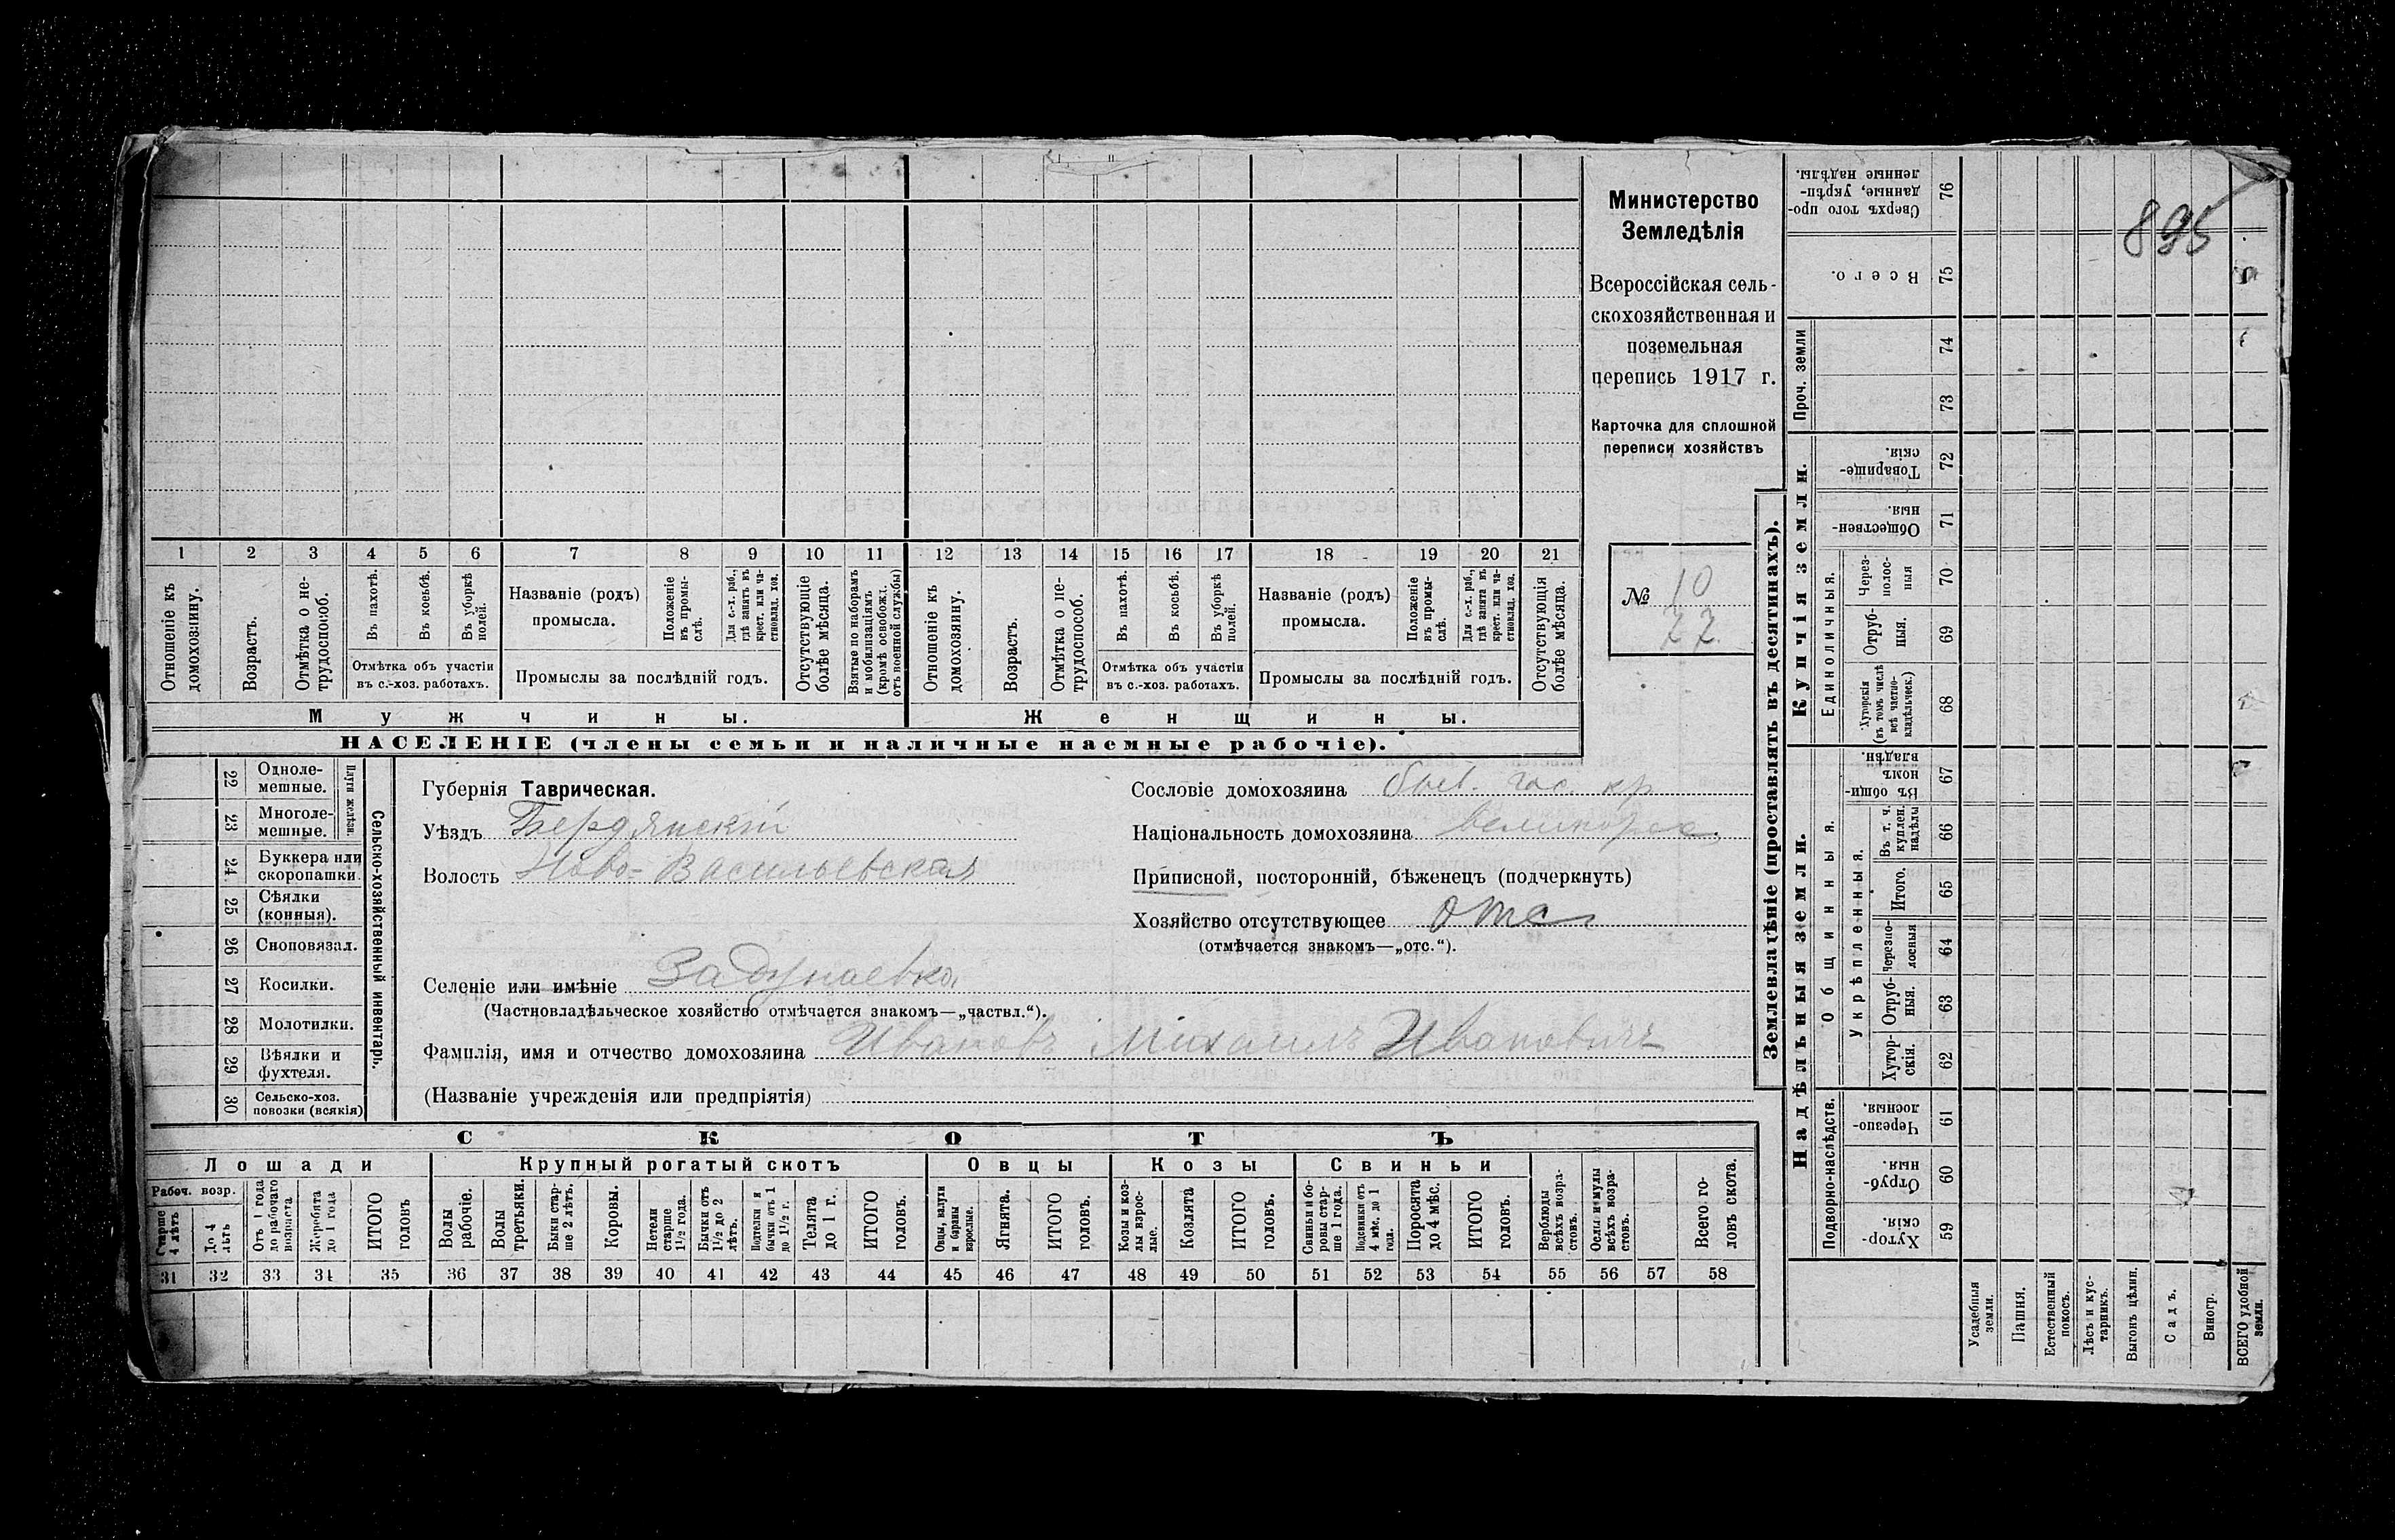 Министерство
Земледѣлія
Всероссійская сель-
скохозяйственная и
поземельная
перепись 1917 г.
Карточка для сплошной
переписи хозяйствъ
№ 10
77.
895
1 2 3 4 5 6 7 8 9 10 11 12 13 14 15 16 17 18 19 20 21
Отношеніе къ домохозяину.
Возрастъ.
Отмѣтка о не-трудоспособ.
Въ пахотѣ.
Въ косьбѣ.
Въ уборкѣ полей.
Отмѣтка объ участіи
въ с.-хоз. работахъ.
Названіе (родъ)
промысла.
Положеніе въ промы-слѣ.
Для с.-х. раб., гдѣ занятъ въ крест. или ча-стновлад. хоз.
Промыслы за послѣдній годъ.
Отсутствующіе болѣе мѣсяца.
Взятые по наборамъ и мобилизаціямъ (кромѣ освобожд. отъ военной службы)
Отношеніе къ домохозяину.
Возрастъ.
Отмѣтка о не-трудоспособ.
Въ пахотѣ.
Въ косьбѣ.
Въ уборкѣ полей.
Отмѣтка объ участіи
въ с.-хоз. работахъ.
Названіе (родъ)
промысла.
Положеніе въ промы-слѣ.
Для с.-х. раб., гдѣ занята въ крест. или ча-стновлад. хоз.
Промыслы за послѣдній годъ.
Отсутствующія болѣе мѣсяца.
Мужчины.
Женщины.
НАСЕЛЕНІЕ (члены семьи и наличные наемные рабочіе).
Сельско-хозяйственный инвентарь.
Плуги желѣзн.
22 Одноле-мешные.
23 Многоле-мешные.
24 Буккера или скоропашки.
25 Сѣялки (конныя).
26 Сноповязал.
27 Косилки.
28 Молотилки.
29 Вѣялки и фухтеля.
30 Сельско-хоз. повозки (всякія)
Губернія Таврическая.
Уѣздъ Бердянскій
Волость Ново-Васильевская
Сословіе домохозяина быв. гос. кр.
Національность домохозяина великорос.
Приписной, посторонній, бѣженецъ (подчеркнуть)
Хозяйство отсутствующее отс
(отмѣчается знакомъ—„отс.“).
Селеніе или имѣніе Задунаевка
(Частновладѣльческое хозяйство отмѣчается знакомъ—„частвл.“).
Фамилія, имя и отчество домохозяина Ивановъ Михаилъ Ивановичъ
(Названіе учрежденія или предпріятія)
СКОТЪ
Лошади
Крупный рогатый скотъ
Овцы
Козы
Свиньи
Рабоч. возр.
Старше 4 лѣтъ
До 4 лѣтъ
Отъ 1 года до рабочаго возраста
Жеребята до 1 года
ИТОГО головъ
Волы рабочіе.
Волы третьяки.
Быки стар-ше 2 лѣтъ.
Коровы.
Нетели старше 1½ года.
Бычки отъ 1½ до 2 лѣтъ.
Подтелки и бычки отъ 1 до 1½ г.
Телята до 1 г.
ИТОГО головъ.
Овцы, валухи и бараны взрослые.
Ягнята.
ИТОГО головъ.
Козы и коз-лы взрос-лые.
Козлята
ИТОГО головъ.
Свиньи и бо-ровы стар-ше 1 года.
Подсвинки отъ 4 мѣс. до 1 года.
Поросята до 4 мѣс.
ИТОГО головъ.
Верблюды всѣхъ возра-стовъ.
Ослы и мулы всѣхъ возра-стовъ.
Всего го-ловъ скота.
31 32 33 34 35 36 37 38 39 40 41 42 43 44 45 46 47 48 49 50 51 52 53 54 55 56 57 58
Землевладѣніе (проставлять въ десятинахъ).
Сверхъ того про-данные, укрѣп-ленные надѣлы. 76
Всего. 75
Проч. земли
74
73
Купчія земли.
Товарище-скія. 72
Обществен-ныя. 71
Единоличныя.
Через-полос-ныя 70
Отруб-ныя. 69
Хуторскія (въ томъ числѣ всѣ частно-владѣльческ.) 68
Надѣльныя земли.
Общинныя.
Въ общин-номъ владѣн. 67
Укрѣпленныя.
Въ т. ч. куплен. надѣлы 66
Итого. 65
Черезпо-лосныя 64
Отруб-ныя. 63
Хутор-скія. 62
Подворно-наслѣдств.
Черезпо-лосныя. 61
Отруб-ныя. 60
Хутор-скія. 59
Усадебныя земли.
Пашня.
Естественный покосъ.
Лѣсъ и кус-тарникъ.
Выгонъ цѣлин.
Садъ.
Виногр.
ВСЕГО удобной земли.